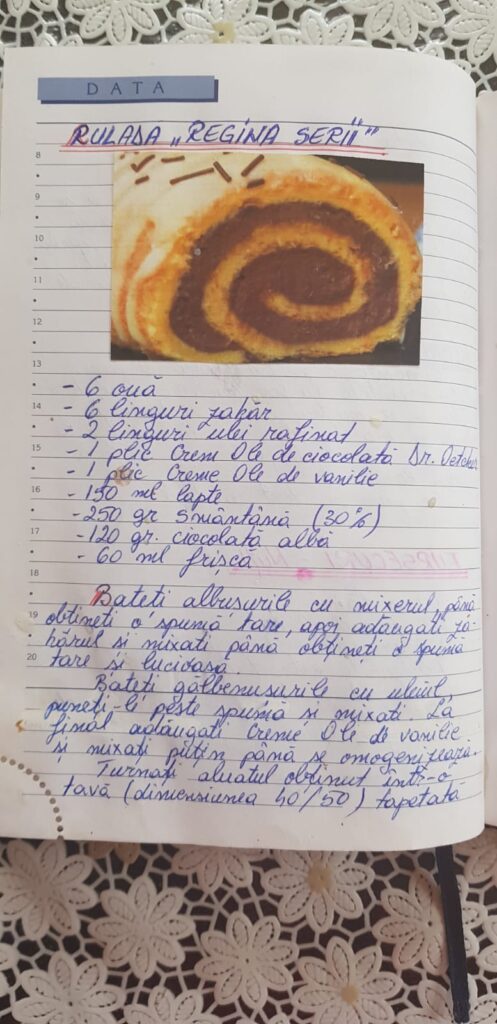 DATA
RULADA „REGINA SERII"
8
9
10
11
12
13
- 6 ouă
14
- 6 linguri zahăr
- 2 linguri ulei rafinat
15
- 1 plic Crem Ole de ciocolată Dr. Oetcher
- 1 plic Creme Ole de vanilie
16
- 150 ml lapte
- 250 gr smântână (30%)
17
- 120 gr. ciocolată albă
- 60 ml frișcă
18
Bateti albusurile cu mixerul, până
19
obtineti o spumă tare, apoi adăugati za-
hărul si mixati până obtineți o spumă
20
tare si lucioasă.
Bateți gălbenusurile cu uleiul,
puneti-le peste spumă si mixati. La
final adăugati Creme Ole de vanilie
si mixati putin până se omogenizează.
Turnați aluatul obtinut într-o
tavă (dimensiunea 40/50) tapetată